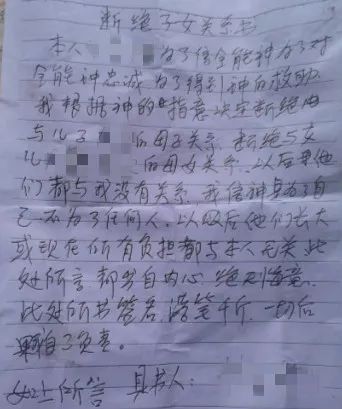 断绝子女关系书
本人 为了信全能神为了对
全能神忠诚为了得到神的救助
我根据神的旨意决定断绝由
与儿子 的母子关系。断绝与女
儿 的母女关系。以后其他
们都与我没有关系。我信神真为了自
己不为了任何人。以后他们长大
或现在所有负担都与本人无关此
处所言都出自内心 绝不
此处所书签名 落笔 一切后
果自己负责。
以上所言 具书人: